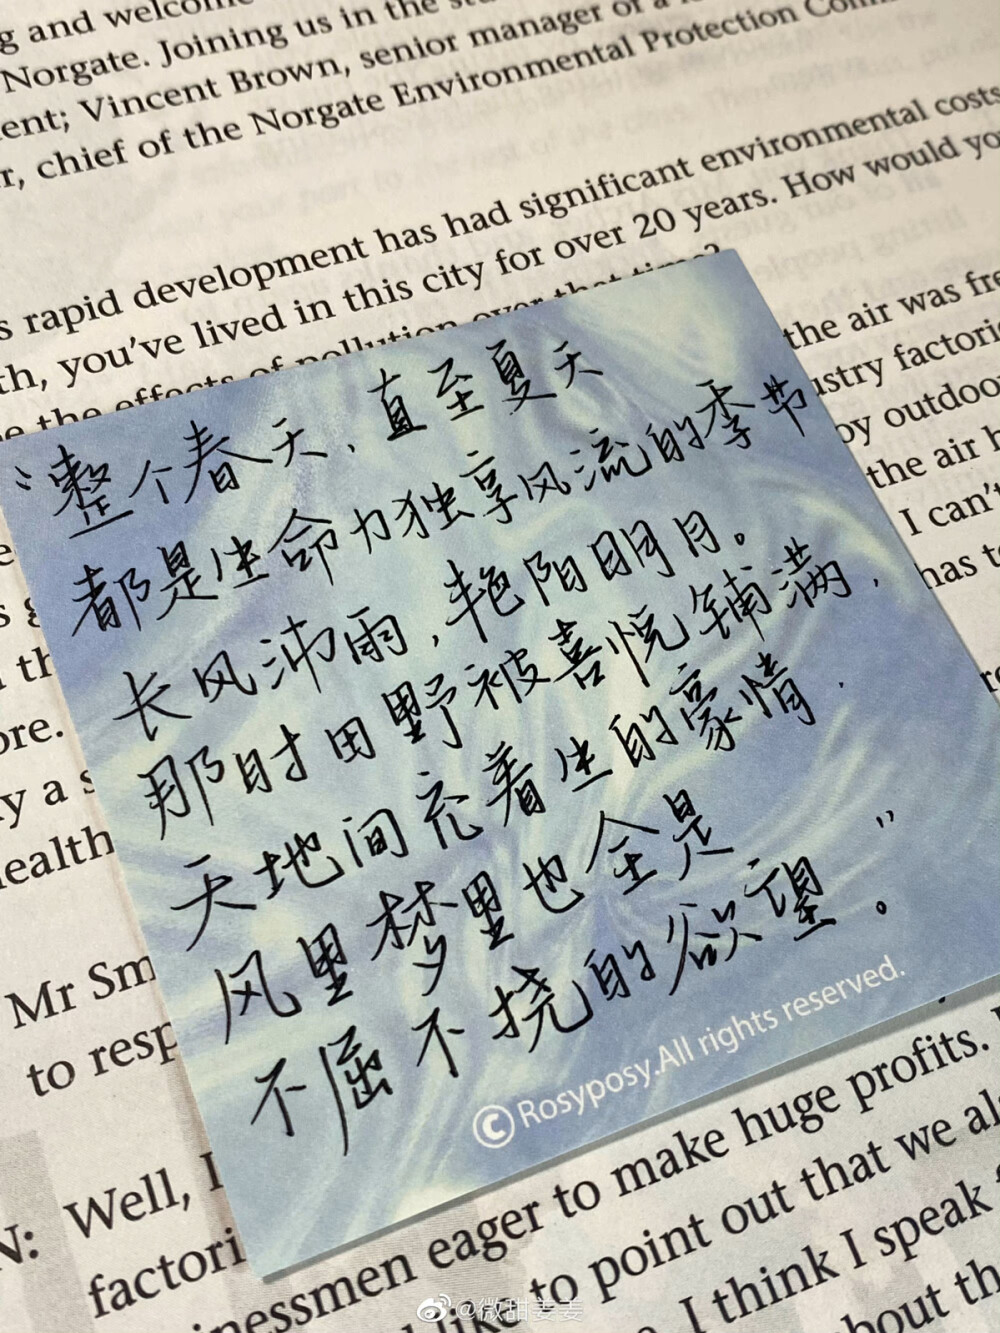 g and welcome
Norgate. Joining us in the
ent; Vincent Brown, senior manager of a
r, chief of the Norgate Environmental Protection
s rapid development has had significant environmental costs
th, you've lived in this city for over 20 years. How would yo
e the effects of pollution over that time?
the air was fre
ustry factorie
oy outdoo
the air h
I can't
has to
“整个春天，直至夏天
都是生命力独享风流的季节
长风沛雨，艳阳明月。
那时田野被喜悦铺满，
天地间充着生的豪情，
风里梦里也全是
不屈不挠的欲望。”
© Rosyposy.All rights reserved.
ore.
y a s
ealth
Mr Sm
to resp
N: Well, I
factori
inessmen eager to make huge profits.
like to point out that we al
I think I speak f
about th
@微甜姜姜